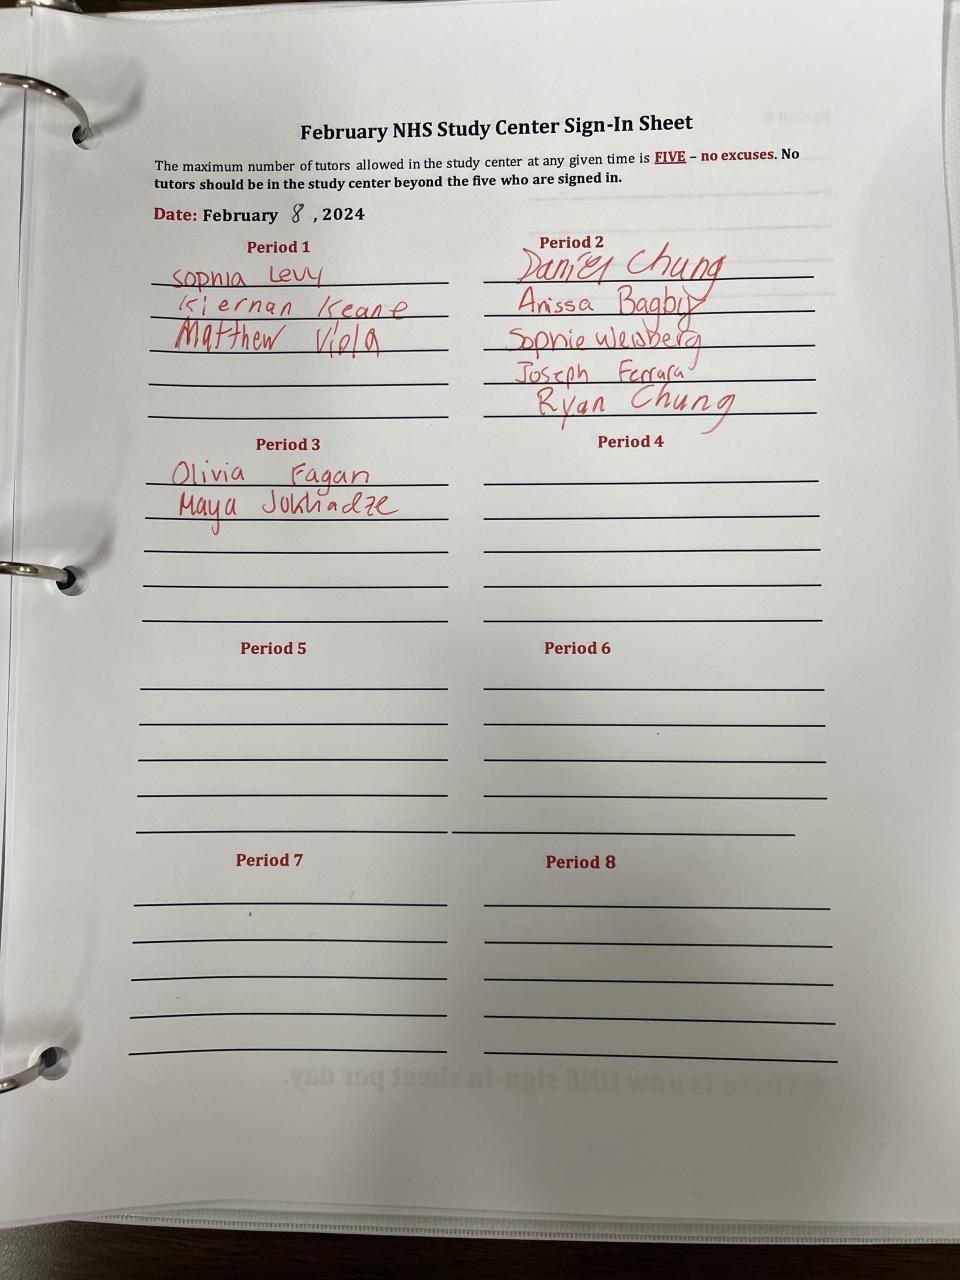 February NHS Study Center Sign-In Sheet
The maximum number of tutors allowed in the study center at any given time is FIVE – no excuses. No
tutors should be in the study center beyond the five who are signed in.
Date: February 8, 2024
Period 1
Sophia Levy
Kiernan Keane
Matthew Viola
Period 2
Daniel Chung
Anissa Bagby
Sophie Weisberg
Joseph Ferrara
Ryan Chung
Period 3
Olivia Fagan
Maya Jokhadze
Period 4
Period 5
Period 6
Period 7
Period 8
★There is now ONE sign-in sheet per day.